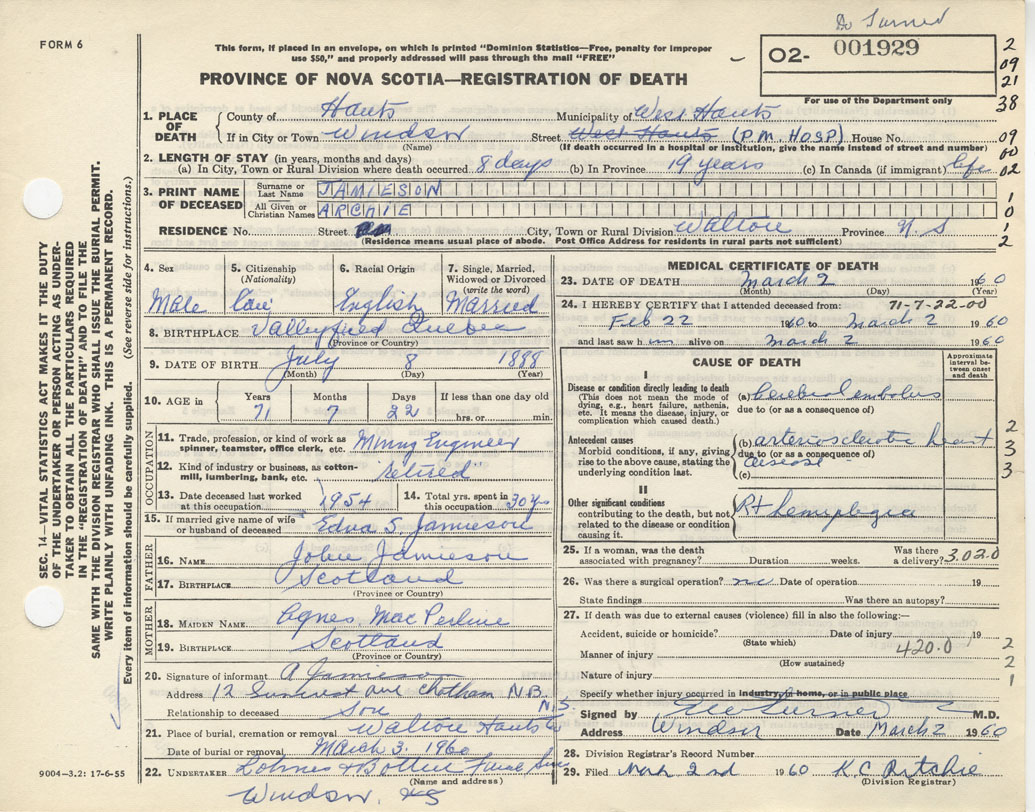 Dr Turner
FORM 6
This form, if placed in an envelope, on which is printed "Dominion Statistics—Free, penalty for improper
use $50," and properly addressed will pass through the mail "FREE"
O2- 001929
For use of the Department only
2
09
21
38
09
00
02
1
0
1
2
PROVINCE OF NOVA SCOTIA—REGISTRATION OF DEATH
1. PLACE OF DEATH
County of Hants Municipality of West Hants
If in City or Town Windsor Street West Hants (P.M. HOSP) House No.
(Name) (If death occurred in a hospital or institution, give the name instead of street and number)
2. LENGTH OF STAY (in years, months and days)
(a) In City, Town or Rural Division where death occurred 8 days (b) In Province 19 years (c) In Canada (if immigrant) life
3. PRINT NAME OF DECEASED
Surname or Last Name JAMIESON
All Given or Christian Names ARCHIE
RESIDENCE No. Street City, Town or Rural Division Walton Province N.S
(Residence means usual place of abode. Post Office Address for residents in rural parts not sufficient)
4. Sex 5. Citizenship (Nationality) 6. Racial Origin 7. Single, Married, Widowed or Divorced (write the word)
Male Can English Married
8. BIRTHPLACE Valleyfield Quebec
(Province or Country)
9. DATE OF BIRTH July 8 1888
(Month) (Day) (Year)
10. AGE in Years Months Days If less than one day old
71 7 22 hrs. or min.
OCCUPATION
11. Trade, profession, or kind of work as spinner, teamster, office clerk, etc. Mining Engineer
12. Kind of industry or business, as cotton-mill, lumbering, bank, etc. "retired"
13. Date deceased last worked at this occupation 1954 14. Total yrs. spent in this occupation 30 yrs
15. If married give name of wife or husband of deceased Edna S. Jamieson
FATHER
16. NAME John Jamieson
17. BIRTHPLACE Scotland
(Province or Country)
MOTHER
18. MAIDEN NAME Agnes Mac
19. BIRTHPLACE Scotland
(Province or Country)
20. Signature of informant A Jamieson
Address 12 Ave Chatham N.B.
Relationship to deceased Son
21. Place of burial, cremation or removal Walton Hants Co N.S.
Date of burial or removal March 3. 1960
22. UNDERTAKER Lohnes & Funeral
(Name and address)
Windsor, NS
9004—3.2: 17-6-55
MEDICAL CERTIFICATE OF DEATH
23. DATE OF DEATH March 2 1960
(Month) (Day) (Year)
24. I HEREBY CERTIFY that I attended deceased from: 71-7-22-00
Feb 22 1960 to March 2 1960
and last saw him alive on March 2 1960
CAUSE OF DEATH
Approximate interval between onset and death
I
Disease or condition directly leading to death
(This does not mean the mode of dying, e.g., heart failure, asthenia, etc. It means the disease, injury, or complication which caused death.)
(a) Cerebral embolus
due to (or as a consequence of)
Antecedent causes
Morbid conditions, if any, giving rise to the above cause, stating the underlying condition last.
(b) arteriosclerotic heart
due to (or as a consequence of)
disease
(c)
2
3
3
II
Other significant conditions
contributing to the death, but not related to the disease or condition causing it.
Rt hemiplegia
25. If a woman, was the death associated with pregnancy? Duration weeks. Was there a delivery? 3.02.0
26. Was there a surgical operation? no Date of operation 19
State findings Was there an autopsy?
27. If death was due to external causes (violence) fill in also the following:—
Accident, suicide or homicide? Date of injury 19
(State which)
Manner of injury 420.0
(How sustained)
Nature of injury
2
2
1
Specify whether injury occurred in industry, in home, or in public place
Signed by Turner M.D.
Address Windsor Date March 2 1960
28. Division Registrar's Record Number
29. Filed March 2nd 1960 K.C Ritchie
(Division Registrar)
SEC. 14—VITAL STATISTICS ACT MAKES IT THE DUTY
OF THE UNDERTAKER OR PERSON ACTING AS UNDER-
TAKER TO OBTAIN ALL THE PARTICULARS REQUIRED
IN THE "REGISTRATION OF DEATH" AND TO FILE THE
SAME WITH THE DIVISION REGISTRAR WHO SHALL ISSUE THE BURIAL PERMIT.
WRITE PLAINLY WITH UNFADING INK. THIS IS A PERMANENT RECORD.
Every item of information should be carefully supplied. (See reverse side for instructions.)